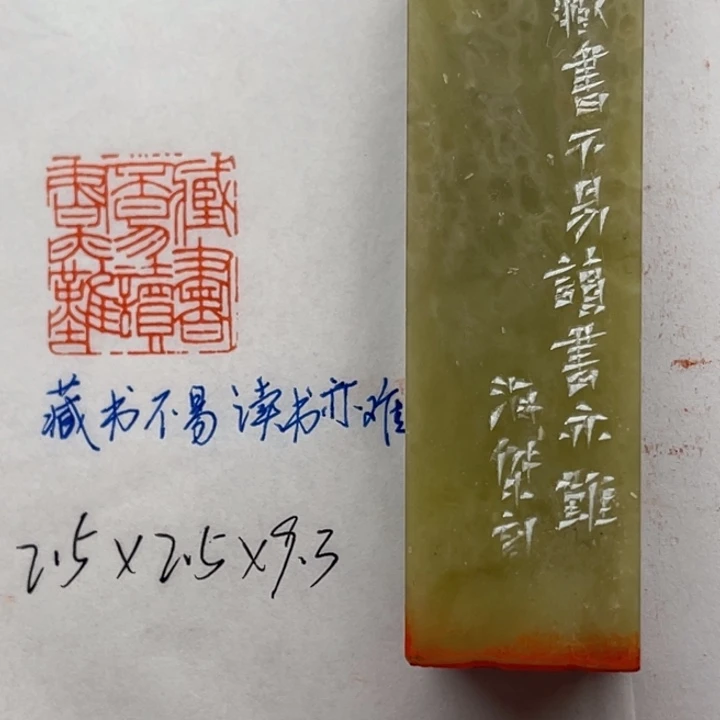 藏書
不易讀
書亦難
藏书不易 读书亦难
2.5×2.5×9.3
藏書不易讀書亦難
海傑記